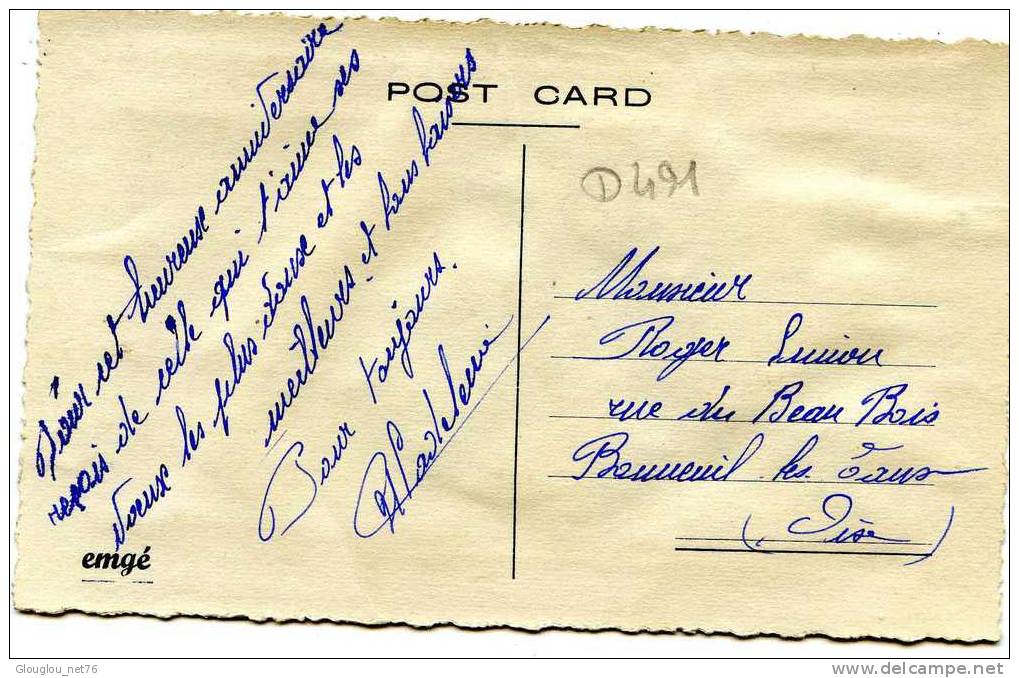 POST CARD
D491
Pour cet heureuse anniversaire
reçois de celle qui t'aime ses
voeux les plus douse et les
meilleurs. et tous baisers
Pour toujours.
Madeleine
Monsieur
Roger
rue du Beau Bois
Bonneuil les Eaux
(Oise)
emgé
Glouglou_net76
delcampe.net